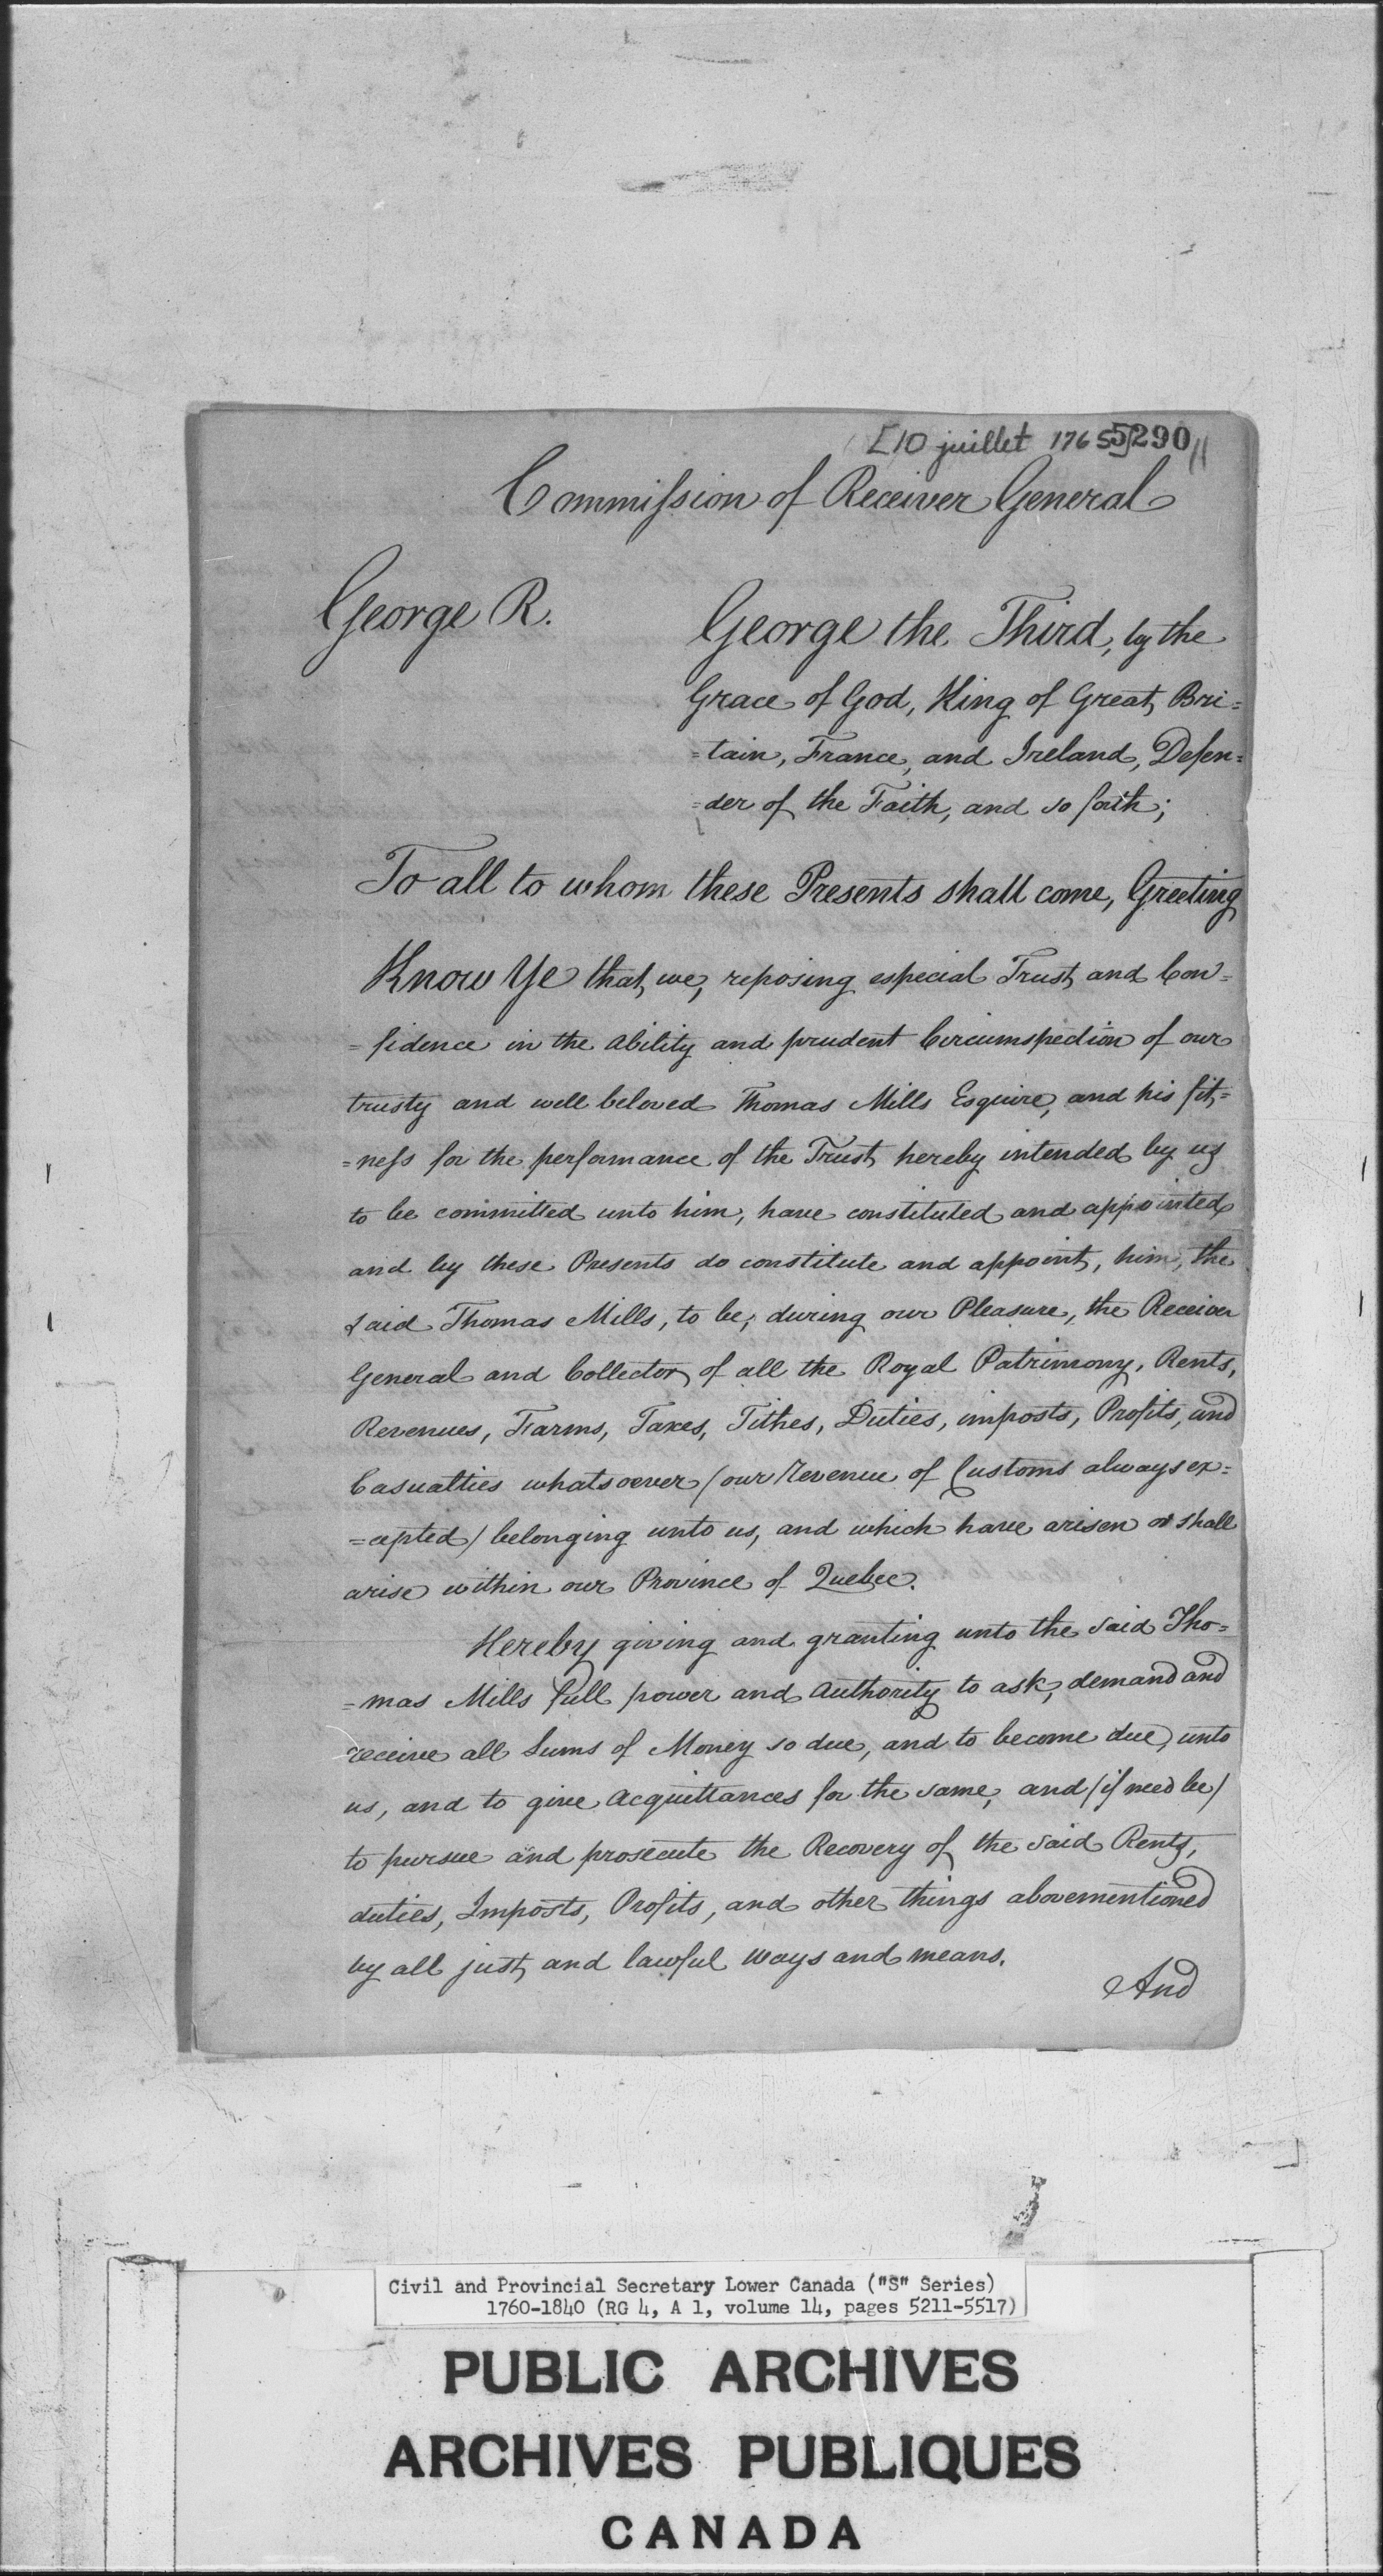 [10 juillet 1765] 5290
Commission of Receiver General
George R.
George the Third, by the
Grace of God, King of Great Bri=
=tain, France, and Ireland, Defen=
=der of the Faith, and so forth;
To all to whom these Presents shall come, Greeting
Know Ye that, we, reposing especial Trust and Con=
=fidence in the ability and prudent Circumspection of our
trusty and well beloved Thomas Mills Esquire, and his fit=
=ness for the performance of the Trust hereby intended by us
to be committed unto him, have constituted and appointed
and by these Presents do constitute and appoint, him, the
said Thomas Mills, to be, during our Pleasure, the Receiver
General and Collector of all the Royal Patrimony, Rents,
Revenues, Farms, Taxes, Tithes, Duties, imposts, Profits, and
Casualties whatsoever / our Revenue of Customs always ex=
=cepted / belonging unto us, and which have arisen or shall
arise within our Province of Quebec.
Hereby giving and granting unto the said Tho=
=mas Mills full power and Authority to ask, demand and
receive all Sums of Money so due, and to become due, unto
us, and to give acquittances for the same, and / if need be /
to pursue and prosecute the Recovery of the said Rents,
duties, Imposts, Profits, and other things abovementioned
by all just and lawful ways and means.
And
Civil and Provincial Secretary Lower Canada ("S" Series)
1760-1840 (RG 4, A 1, volume 14, pages 5211-5517)
PUBLIC ARCHIVES
ARCHIVES PUBLIQUES
CANADA